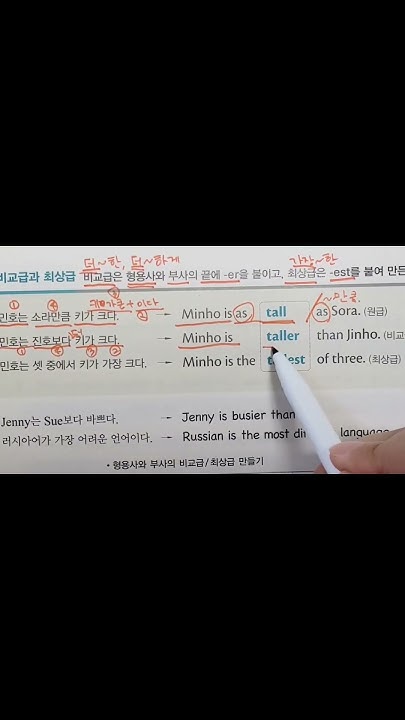 더~한, 더~하게 가장~한
비교급과 최상급 비교급은 형용사와 부사의 끝에 -er을 붙이고, 최상급은 -est를 붙여 만든
① ④ ③ 키가큰+이다 ② ~만큼
민호는 소라만큼 키가 크다. → Minho is as tall as Sora. (원급)
더
민호는 진호보다 키가 크다. → Minho is taller than Jinho. (비교
① ④ ③ ②
민호는 셋 중에서 키가 가장 크다. → Minho is the tallest of three. (최상급)
Jenny는 Sue보다 바쁘다. → Jenny is busier than
러시아어가 가장 어려운 언어이다. → Russian is the most language
• 형용사와 부사의 비교급/최상급 만들기